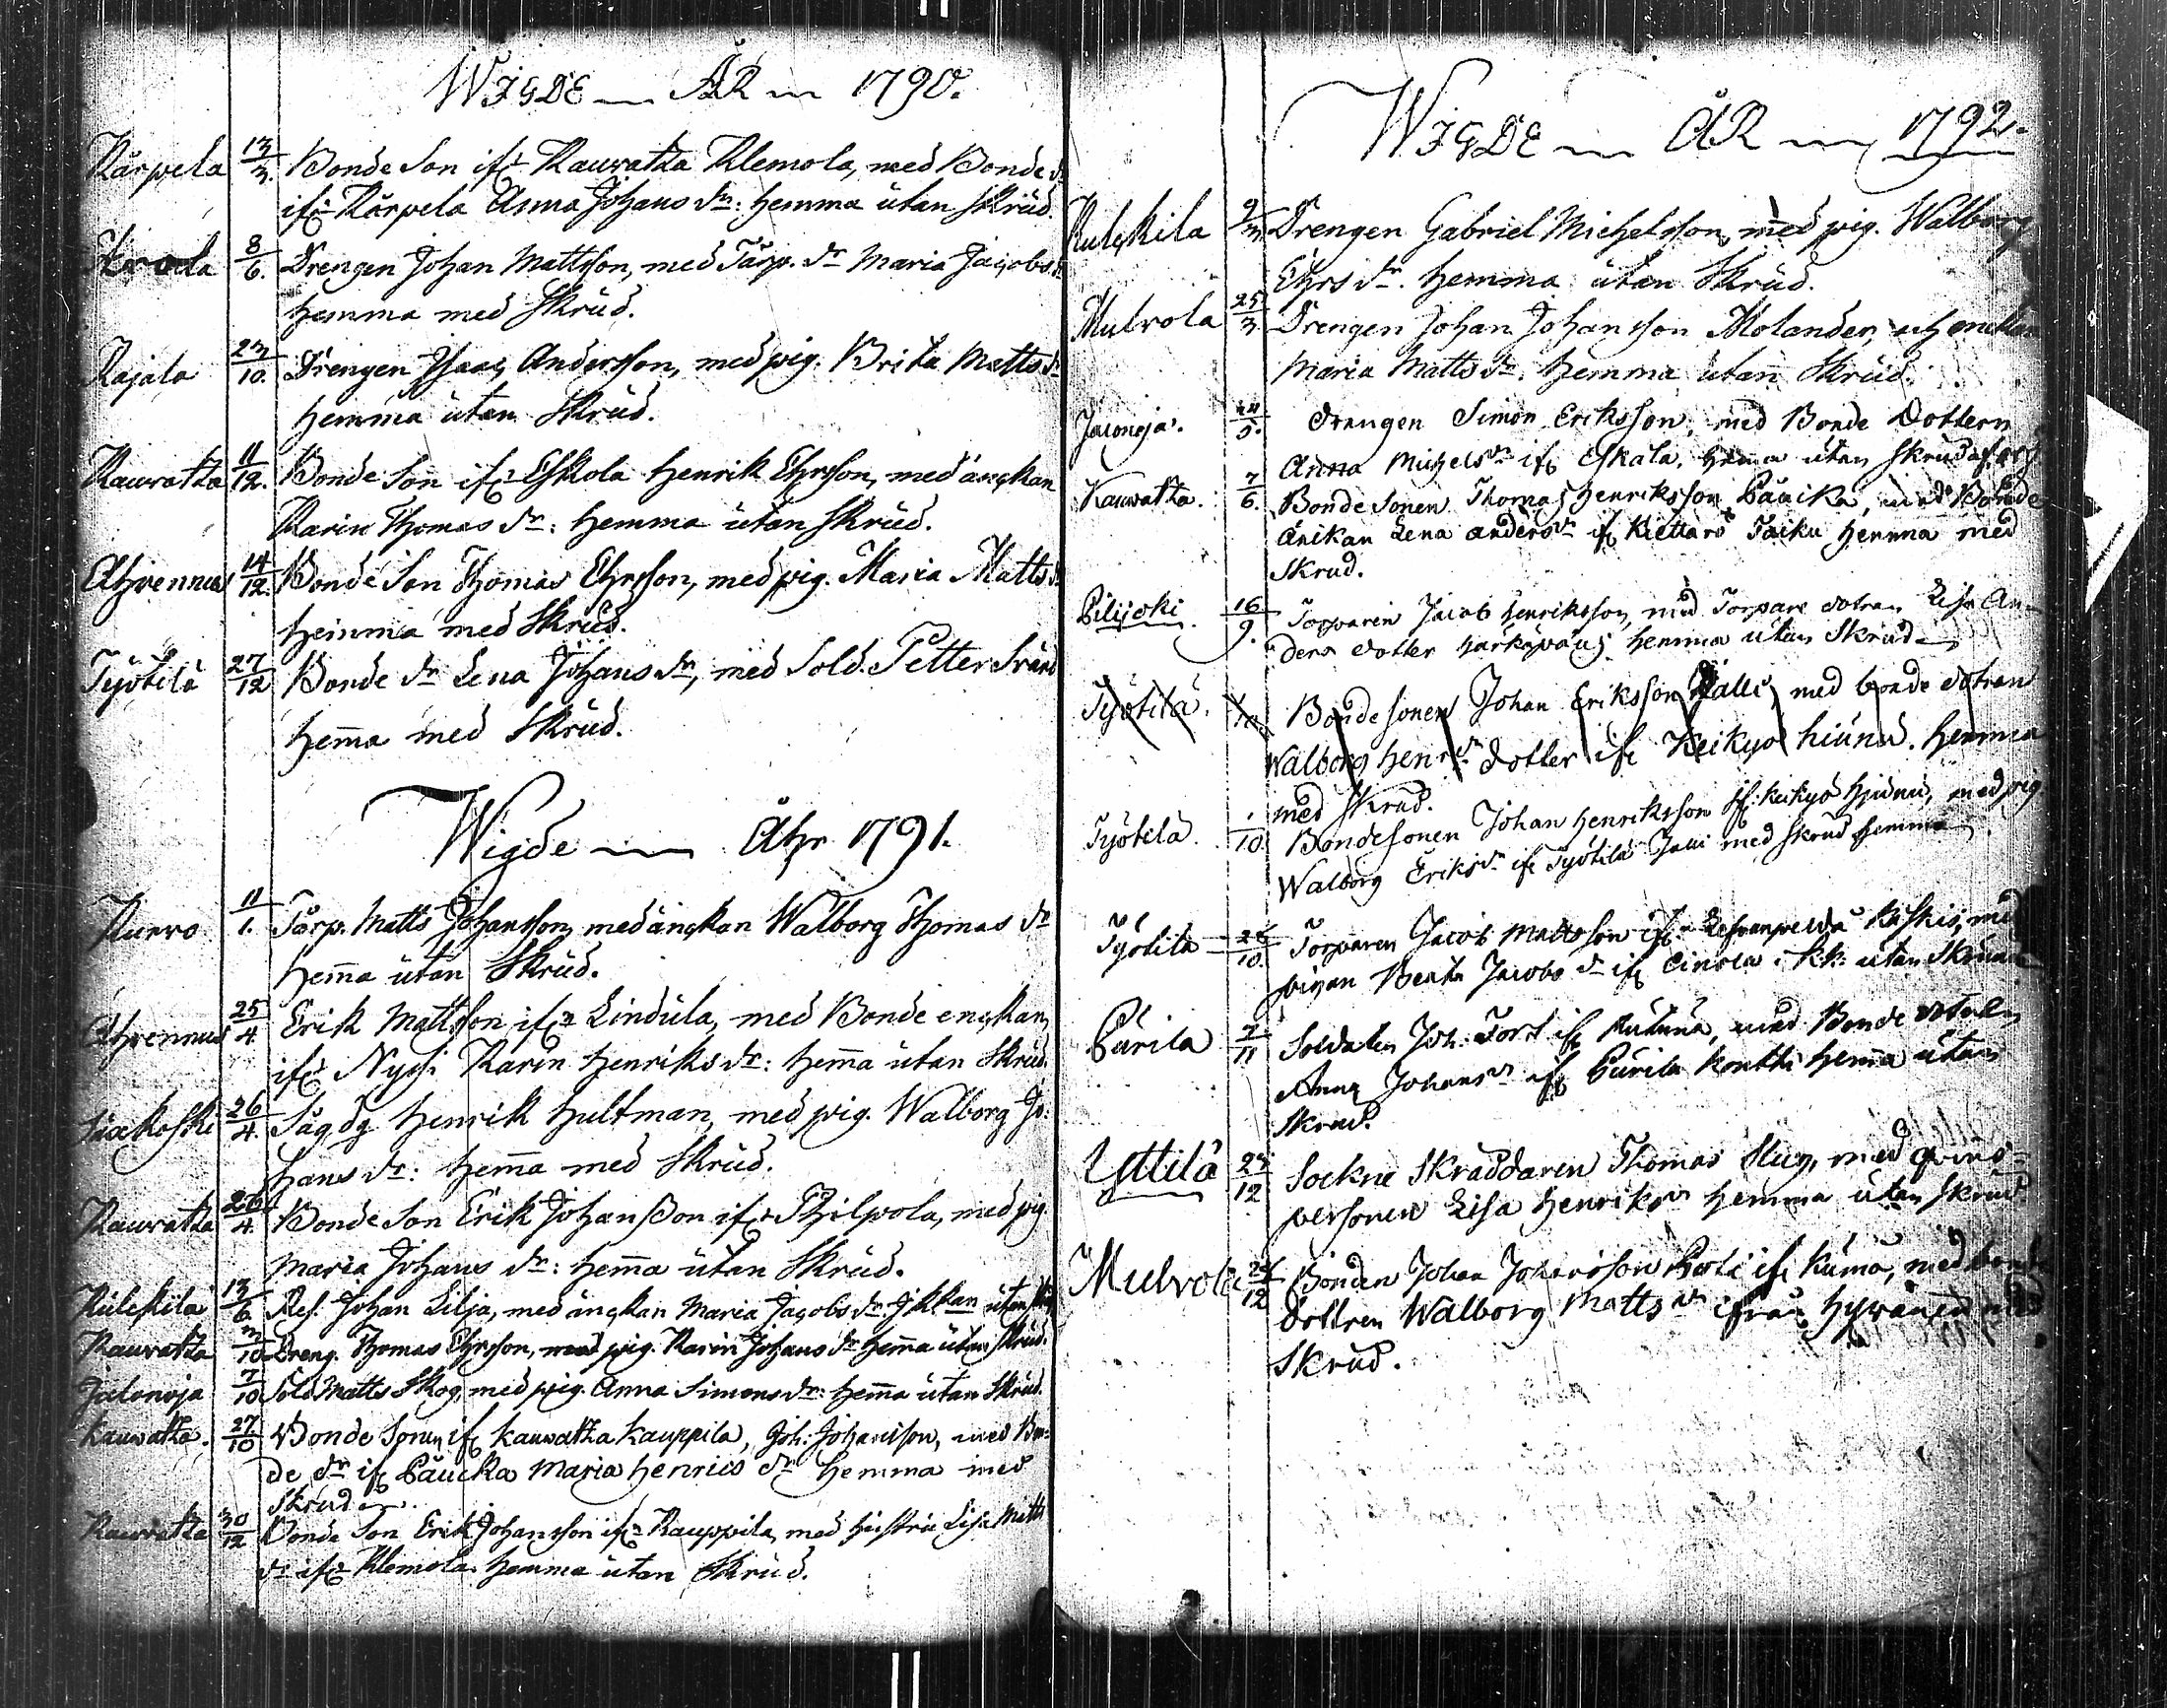 WIGDE ÅR 1790.
Kårpela 13/3. Bonde Son ifr Kauvatka Klemola, med Bonde dr
ifr Kårpela Anna Johans dr: hemma utan Skrud.
8/6. Drengen Johan Mattsson, med Tårp. dr Maria Jacobs dr
hemma med Skrud.
Rajala 23/10. Drengen Isaac Andersson, med pig. Brita Matts dr
hemma utan Skrud.
Kauvatka 11/12. Bonde Son ifr Eskola Henrik Ehrsson, med änckan
Karin Thomas dr: hemma utan Skrud.
Ahvennus 14/12. Bonde Son Thomas Ehrsson, med pig. Maria Matts dr
hemma med Skrud.
Työtilä 27/12 Bonde dr Lena Johans dr, med Sold. Petter Svan
hema med Skrud.
Wigde Åhr 1791.
Kurvo 11/1. Tårp. Matts Johansson, med änckan Walborg Thomas dr
hema utan Skrud.
Ahvennus 25/4 Erik Mattsson ifr Lindula, med Bonde enckan
ifr Karin Henriks dr: hema utan Skrud.
26/4. Henrik Hultman, med pig. Walborg Jo:
hans dr: hema med Skrud.
Kauvatka 26/4. Bonde Son Erik Johansson ifr Philpola, med pig
Maria Johans dr: hema utan Skrud.
Kulckila 13/6. Ref. Johan Lilja, med änckan Maria Jacobs dr
Kauvatka 3/10 Dreng. Thomas Ehrsson, med pig. Karin Johans dr hema utan Skrud.
Jalonoja 7/10 Sold Matts Skog, med pig. Anna Simons dr: hema utan Skrud.
Kauvatka. 27/10 Bonde Sonen ifr Kauvatka Kauppila, Joh: Johansson, med Bon-
de dr ifr Maria Henrics dr hemma med
Skrud
Kauvatka 30/12 Bonde Son Erik Johansson ifr Kauppila, med Lisa Matts
dr ifr Klemola hemma utan Skrud.
WIGDE ÅR 1792.
Kulckila 9/3 Drengen Gabriel Michelsson, med pig. Walborg
Ehrs dr. hemma utan Skrud.
Mulvola 25/3 Drengen Johan Johansson Molander, och enckan
Maria Matts dr. hemma utan Skrud.
Jalonoja. Drengen Simon Eriksson, med Bonde Dottern
Anna Michels dr ifr Eskala. hema utan Skrud
Kauvatka. 7/6. Bonde Sonen Thomas Henriksson, med Bonde
Änkan Lena Anders dr ifr hemma med
Skrud.
Pilijoki. 16/9. Torparen Jacob Henriksson, med Torpare dotren Lisa An-
ders dotter hemma utan Skrud
Työtilä. 1/10 Bonde sonen Johan Eriksson Jalli, med bonde dotren
Walborg Henr dr dotter ifr Keikyö hiunu. hemma
med Skrud.
Työtilä. 1/10 Bonde sonen Johan Henriksson ifr: Keikyö Hiunu, med pig
Walborg Eriks dr ifr Työtilä Jalli med Skrud hemma
Työtilä 10. Torparen Jacob Mattsson ifr
pigan Beata Jacobs dr ifr utan Skrud
Pärila 7/11 Soldaten Joh: Fort ifr med Bonde dotren
Anna Johans dr ifr Pärila Kontti hema utan
Skrud.
Yttilä 12 Sockne Skräddaren Thomas med qvins-
personen Lisa Henriks dr hemma utan Skrud
Mulvola 12 Bonden Johan Johansson ifr Kumo, med bonde
dottren Walborg Matts dr ifrån med
Skrud.